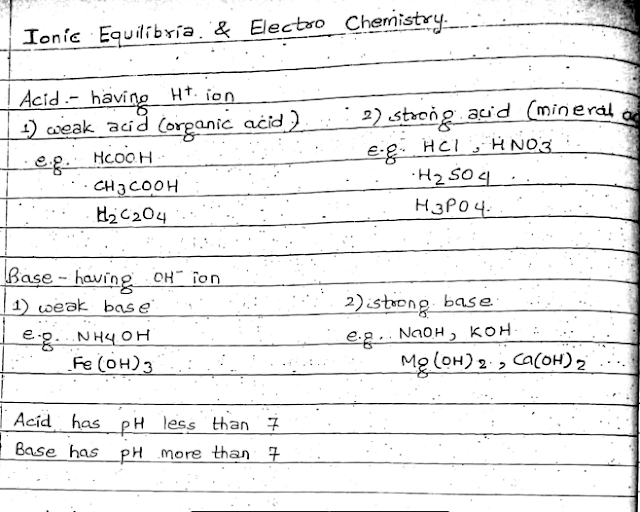 Ionic Equilibria & Electro Chemistry.
Acid - having H+ ion
1) weak acid (organic acid) 2) strong acid (mineral
e.g. HCOOH e.g. HCl, HNO3
CH3COOH H2SO4
H2C2O4 H3PO4.
Base - having OH- ion
1) weak base 2) strong base
e.g. NH4OH e.g. NaOH, KOH
Fe(OH)3 Mg(OH)2, Ca(OH)2
Acid has pH less than 7
Base has pH more than 7